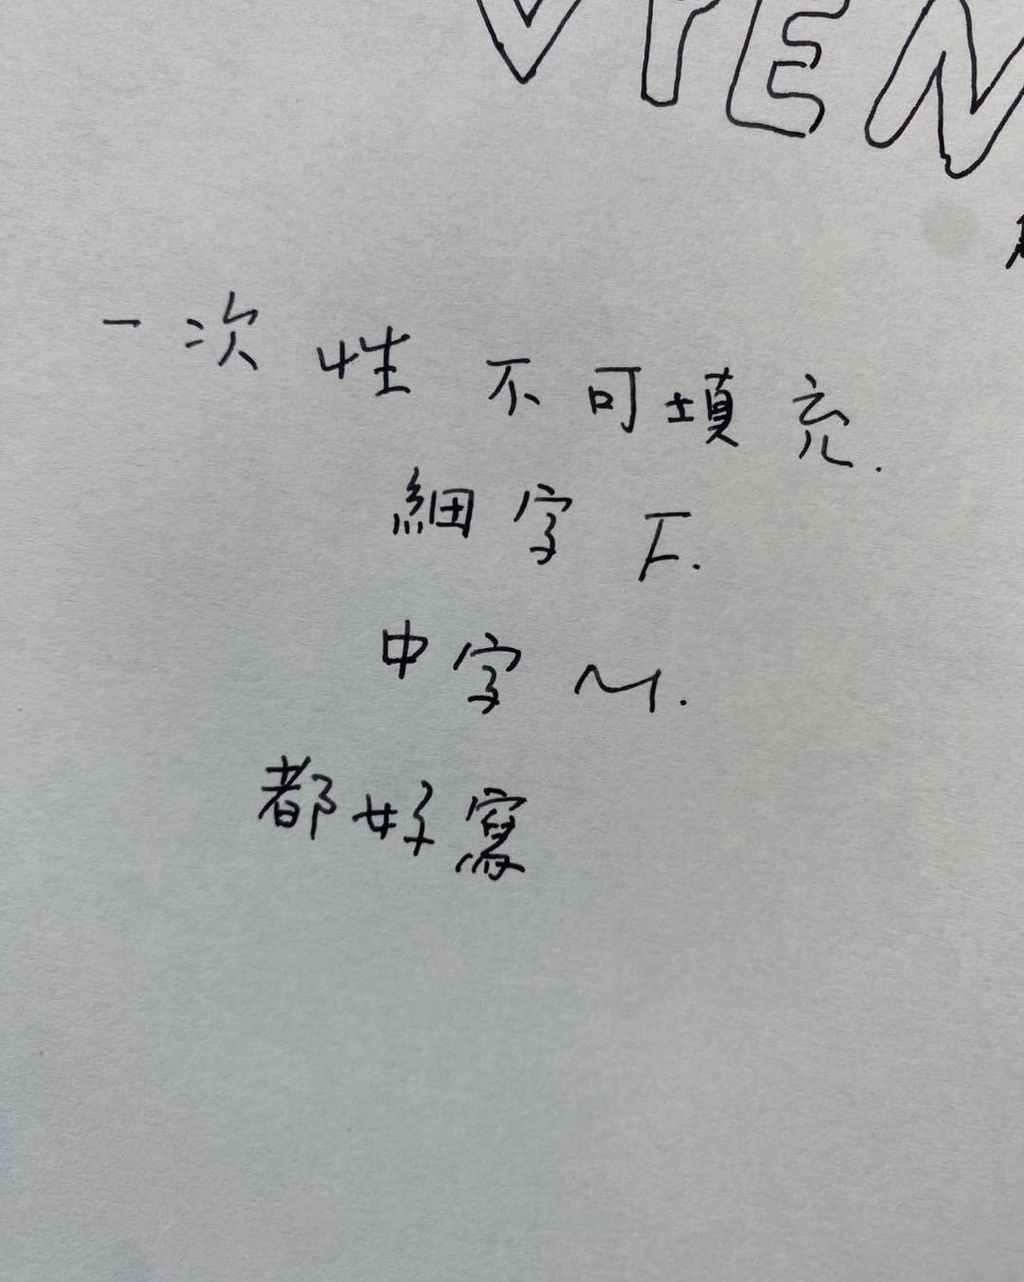 VPEN
一次性不可填充.
細字 F.
中字 M.
都好寫